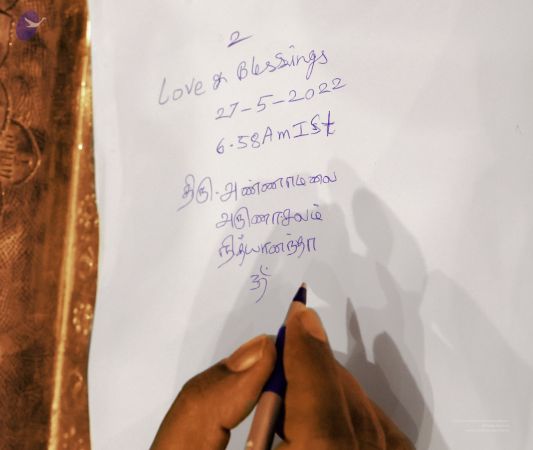 2
Love & Blessings
27-5-2022
6.58AM ISt
திரு.அண்ணாமலை
அருணாசலம்
நித்யானந்தா